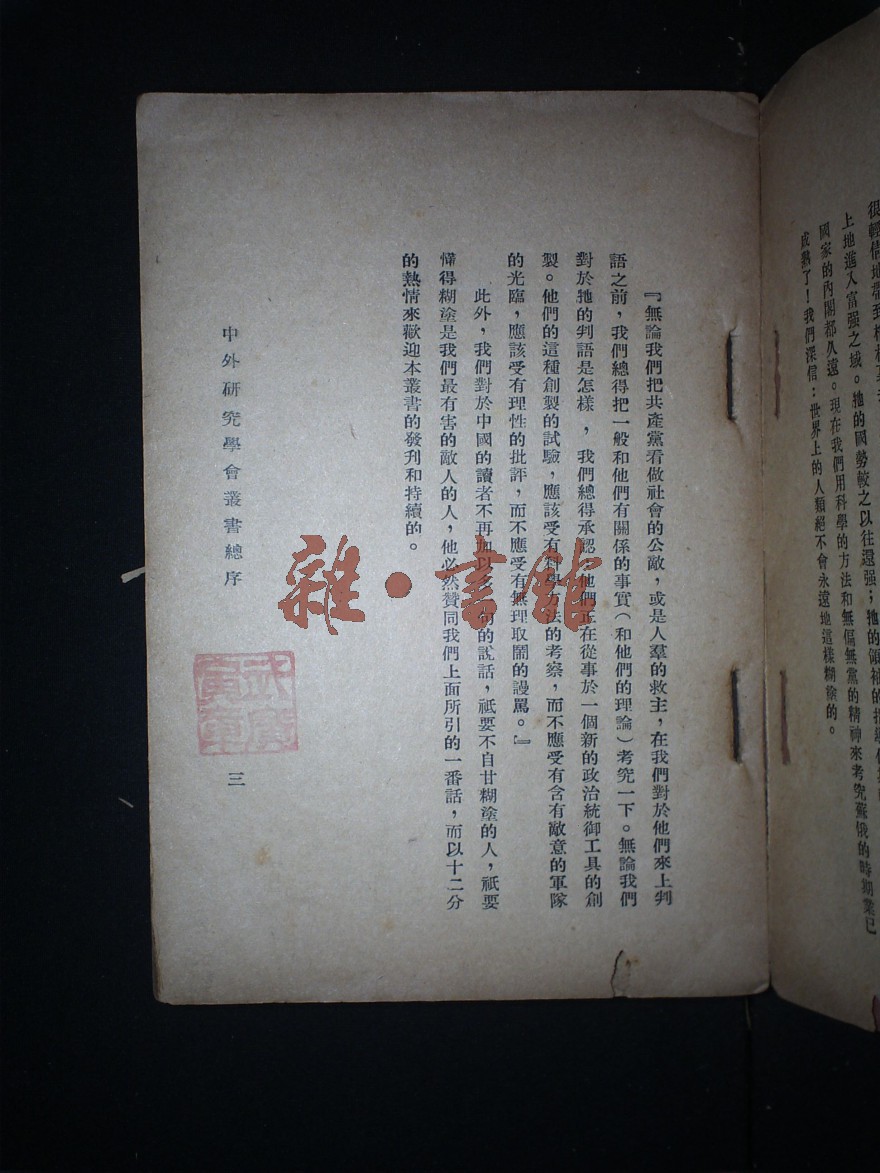 上地進入富强之域。牠的國勢較之以往還强；牠的領袖的指導
國家的內閣都久遠。現在我們用科學的方法和無偏無黨的精神來考究蘇俄的時期業已
成熟了！我們深信：世界上的人類絕不會永遠地這樣糊塗的。
『無論我們把共產黨看做社會的公敵，或是人羣的救主，在我們對於他們來上判
語之前，我們總得把一般和他們有關係的事實（和他們的理論）考究一下。無論我們
對於牠的判語是怎樣，我們總得承認他們正在從事於一個新的政治統御工具的創
製。他們的這種創製的試驗，應該受有科學方法的考察，而不應受有含有敵意的軍隊
的光臨，應該受有理性的批評，而不應受有無理取鬧的謾罵。』
此外，我們對於中國的讀者不再加以多一句的說話，祇要不自甘糊塗的人，祇要
懂得糊塗是我們最有害的敵人的人，他必然贊同我們上面所引的一番話，而以十二分
的熱情來歡迎本叢書的發刋和持續的。
中外研究學會叢書總序
三
雜·書館